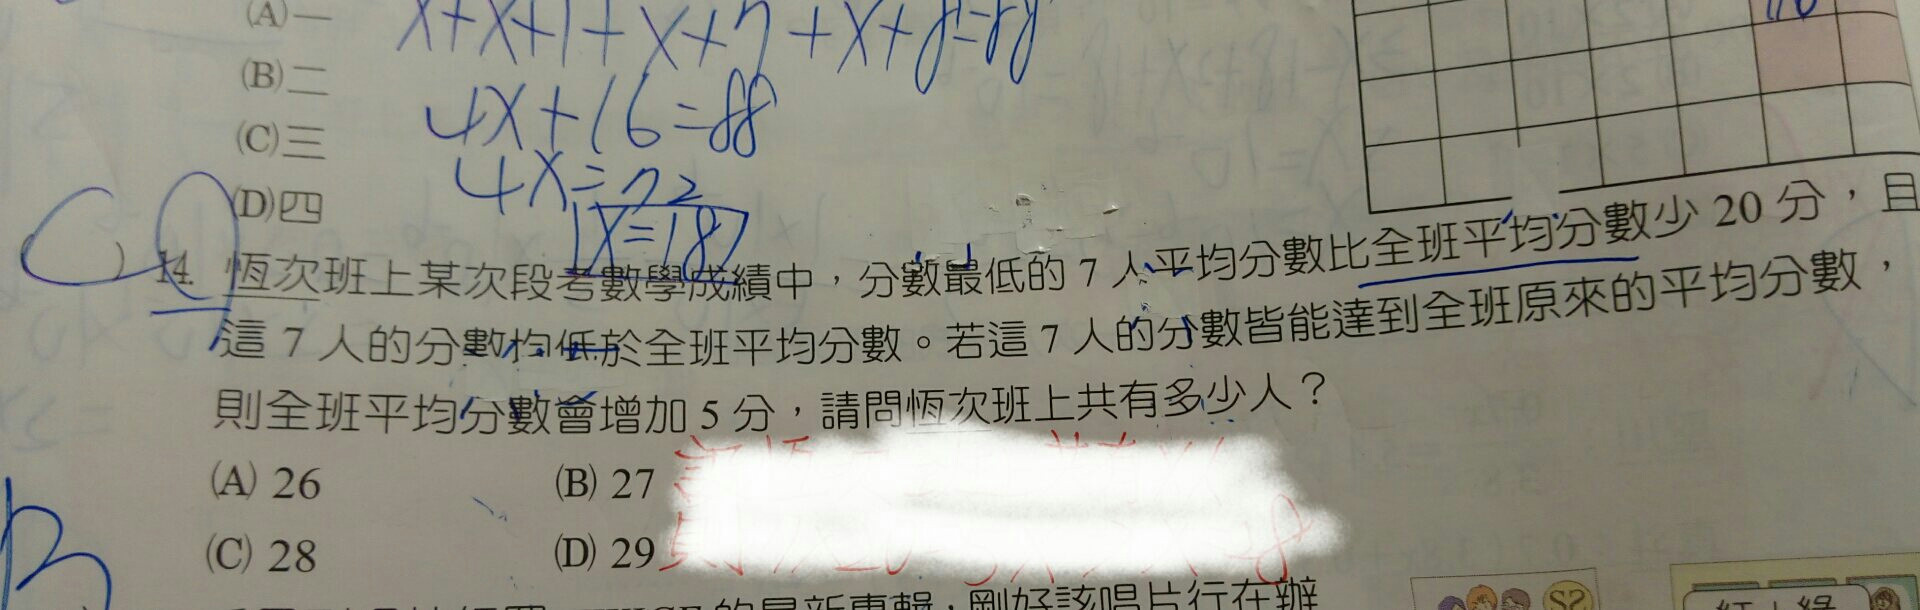 (A)一
x+x+1+x+7+x+8=88
(B)二
4x+16=88
(C)三
4x=72
(D)四
x=18
C
14. 恆次班上某次段考數學成績中，分數最低的 7 人平均分數比全班平均分數少 20 分，且
這 7 人的分數均低於全班平均分數。若這 7 人的分數皆能達到全班原來的平均分數，
則全班平均分數會增加 5 分，請問恆次班上共有多少人？
(A) 26
(B) 27
(C) 28
(D) 29
B
的最新專輯，剛好該唱片行在辦